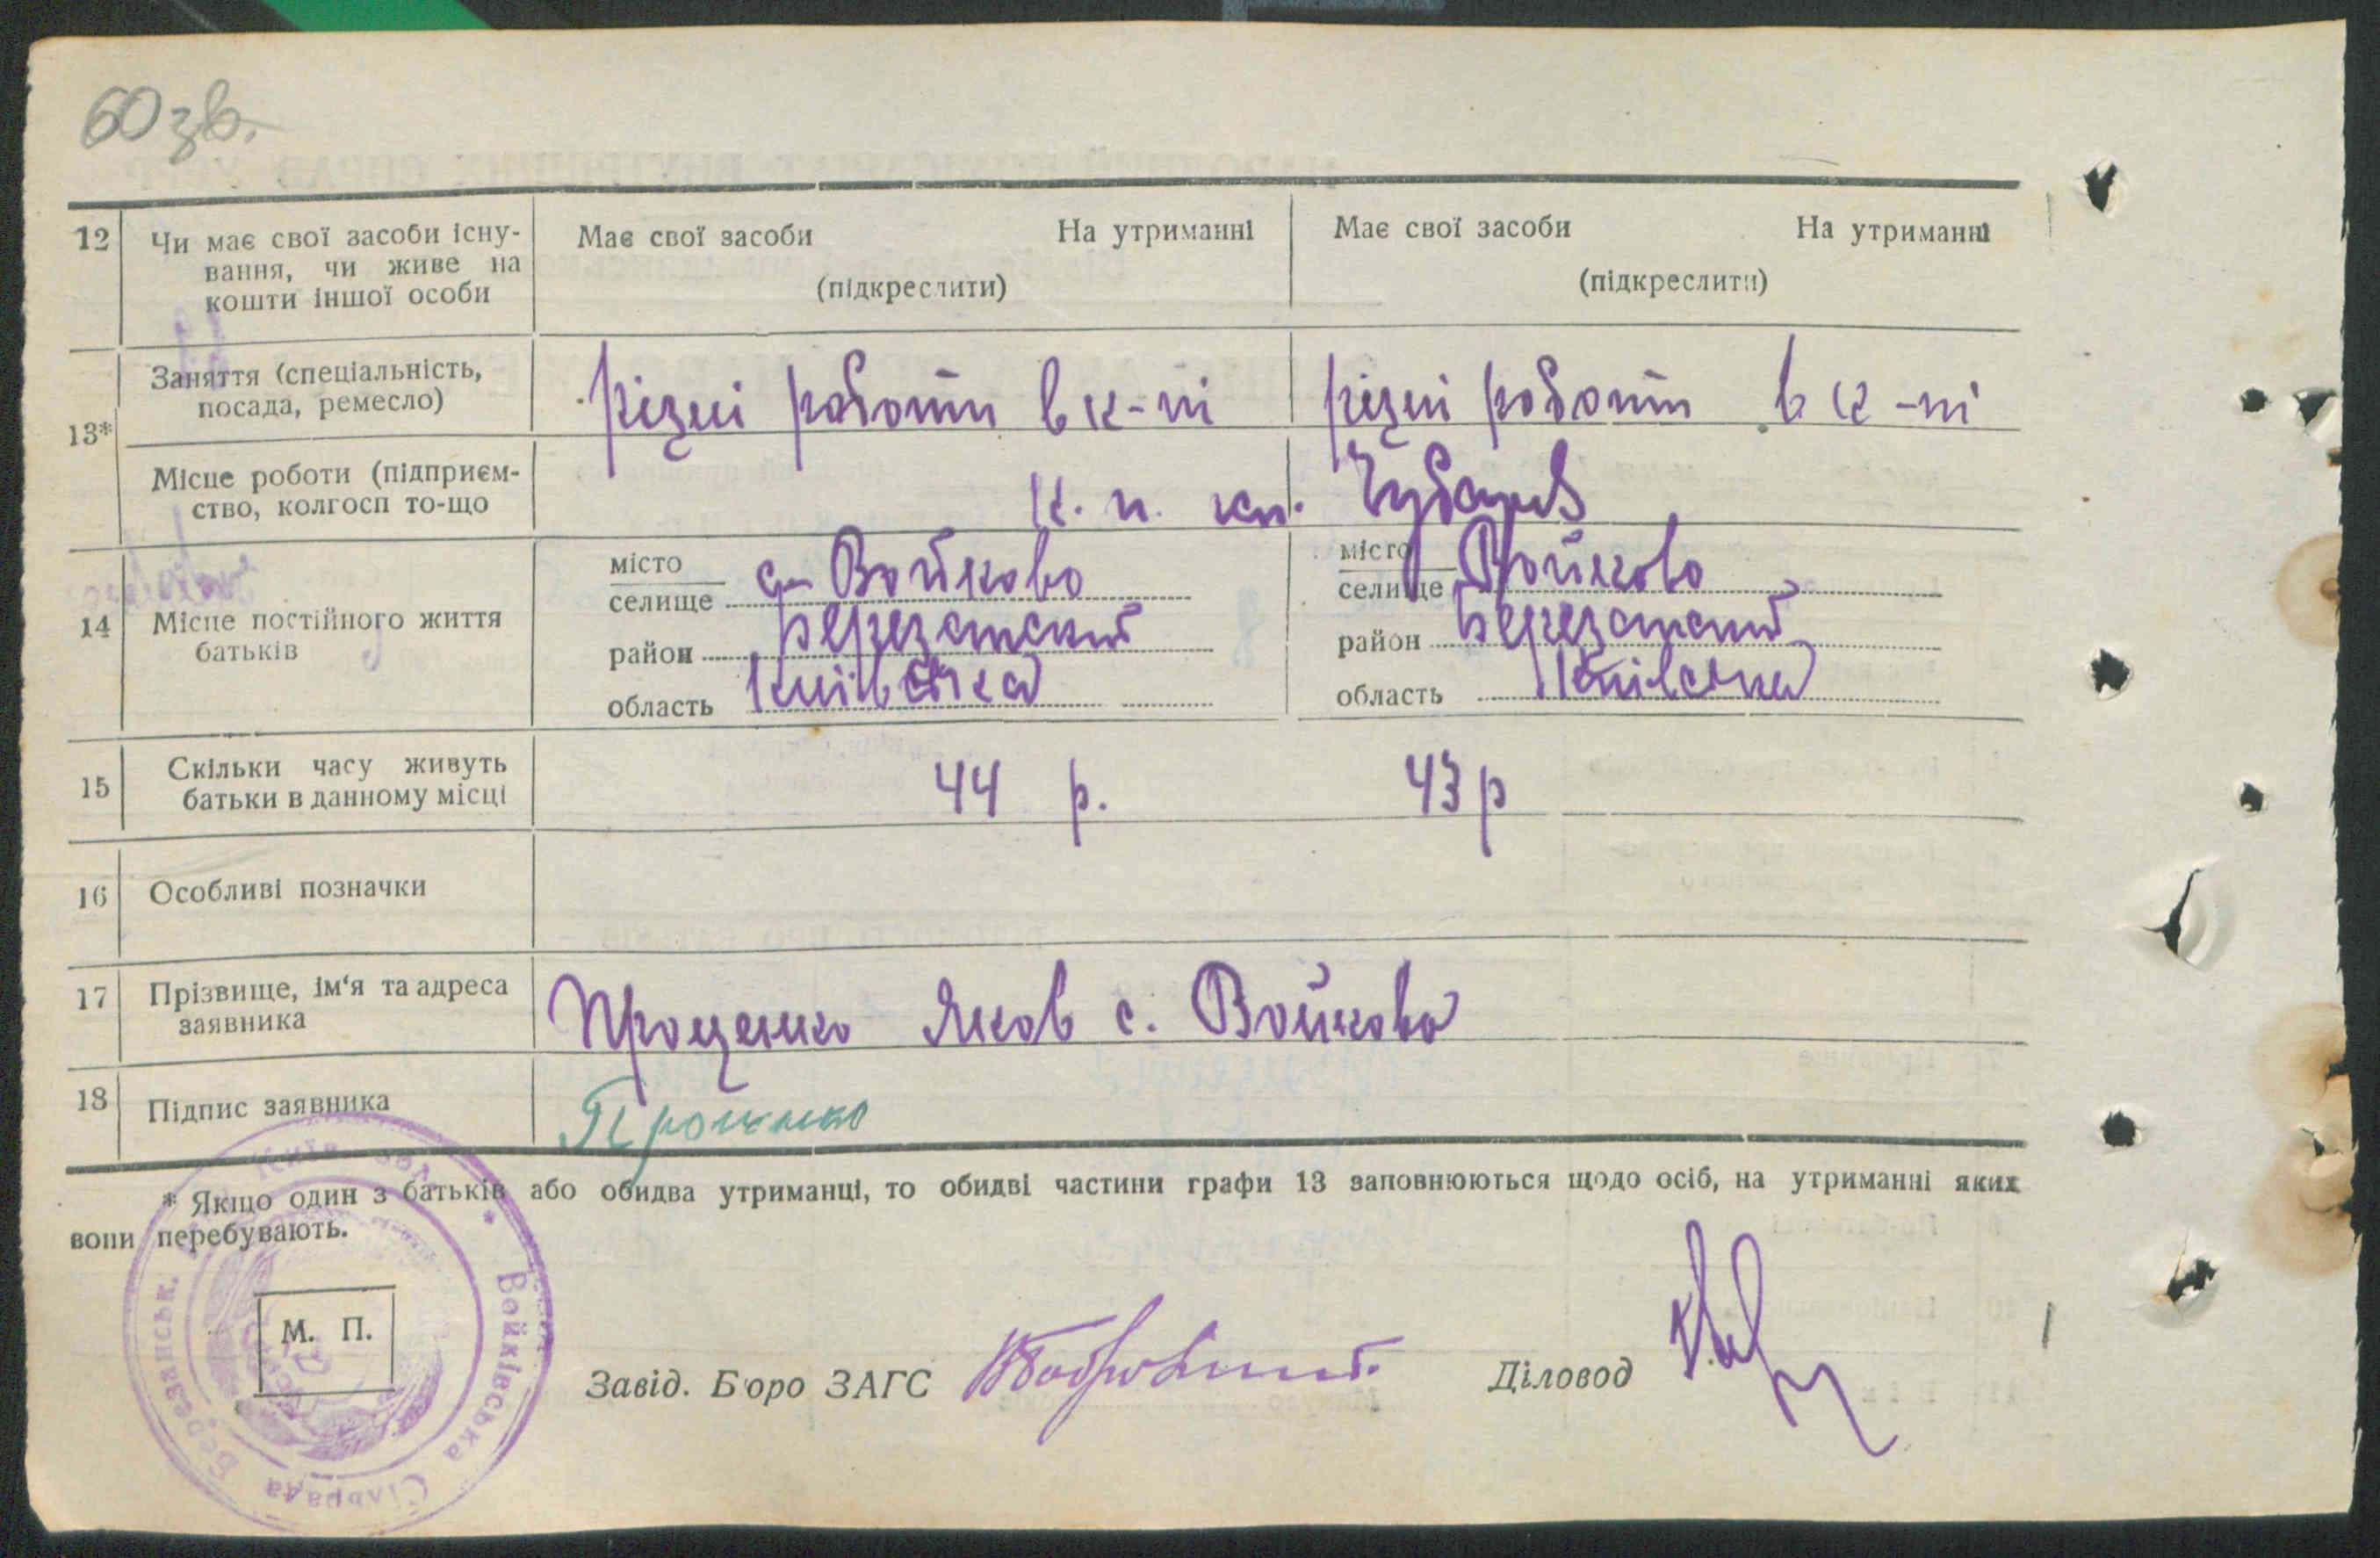 60 зв.
12 Чи має свої засоби існу- Має свої засоби На утриманні Має свої засоби На утриманні
вання, чи живе на
кошти іншої особи (підкреслити) (підкреслити)
Заняття (спеціальність,
посада, ремесло) різні роботи в к-пі різні роботи в к-пі
13*
Місце роботи (підприєм-
ство, колгосп то-що к. п. ім. Чубаря
14 Місце постійного життя
батьків
місто
селище с. Войково
район Березанский
область Київська
місто
селище Войково
район Березанский
область Київська
15 Скільки часу живуть
батьки в данному місці 44 р. 43 р
16 Особливі позначки
17 Прізвище, ім'я та адреса
заявника Проценко Яков с. Войково
18 Підпис заявника Проценко
* Якщо один з батьків або обидва утриманці, то обидві частини графи 13 заповнюються щодо осіб, на утриманні яких
вони перебувають.
М. П.
Завід. Бюро ЗАГС Діловод
Войківська Сільрада Березанськ. Київ. обл.